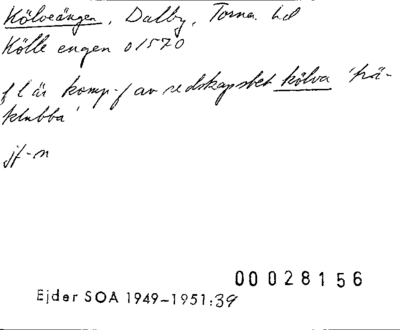 Kölveängen, Dalby, Torna hd
Kölle engen 01570
f l är komp-f av redskapsbet kölva 'trä-
klubba'
jf-n
00 028156
Ejder SOA 1949-1951:39